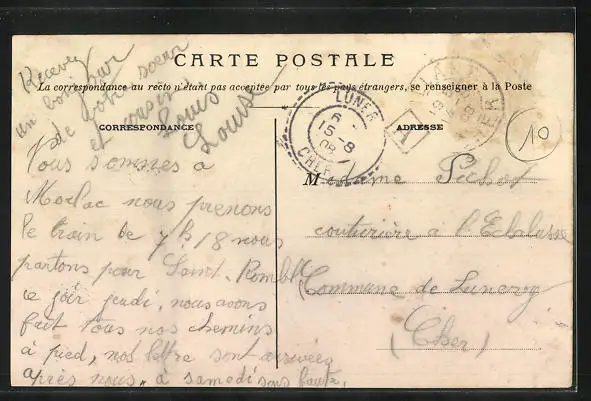 CARTE POSTALE
La correspondance au recto n'étant pas acceptée par tous les pays étrangers, se renseigner à la Poste
CORRESPONDANCE
ADRESSE
Recevez
un bonjour
de votre soeur
et cousin
Louis
Louise
Nous sommes a
nous prenons
le train de 7 h 18 nous
partons pour Saint
ce soir jeudi, nous avons
fait tous nos chemins
à pied, nos lettre sont arrivées
après nous. à samedi sans faute.
LUNER
6
15-8
08
CHER
A
10
Madame Pichot
couturière à l'
(Commune de Lunery
(Cher)